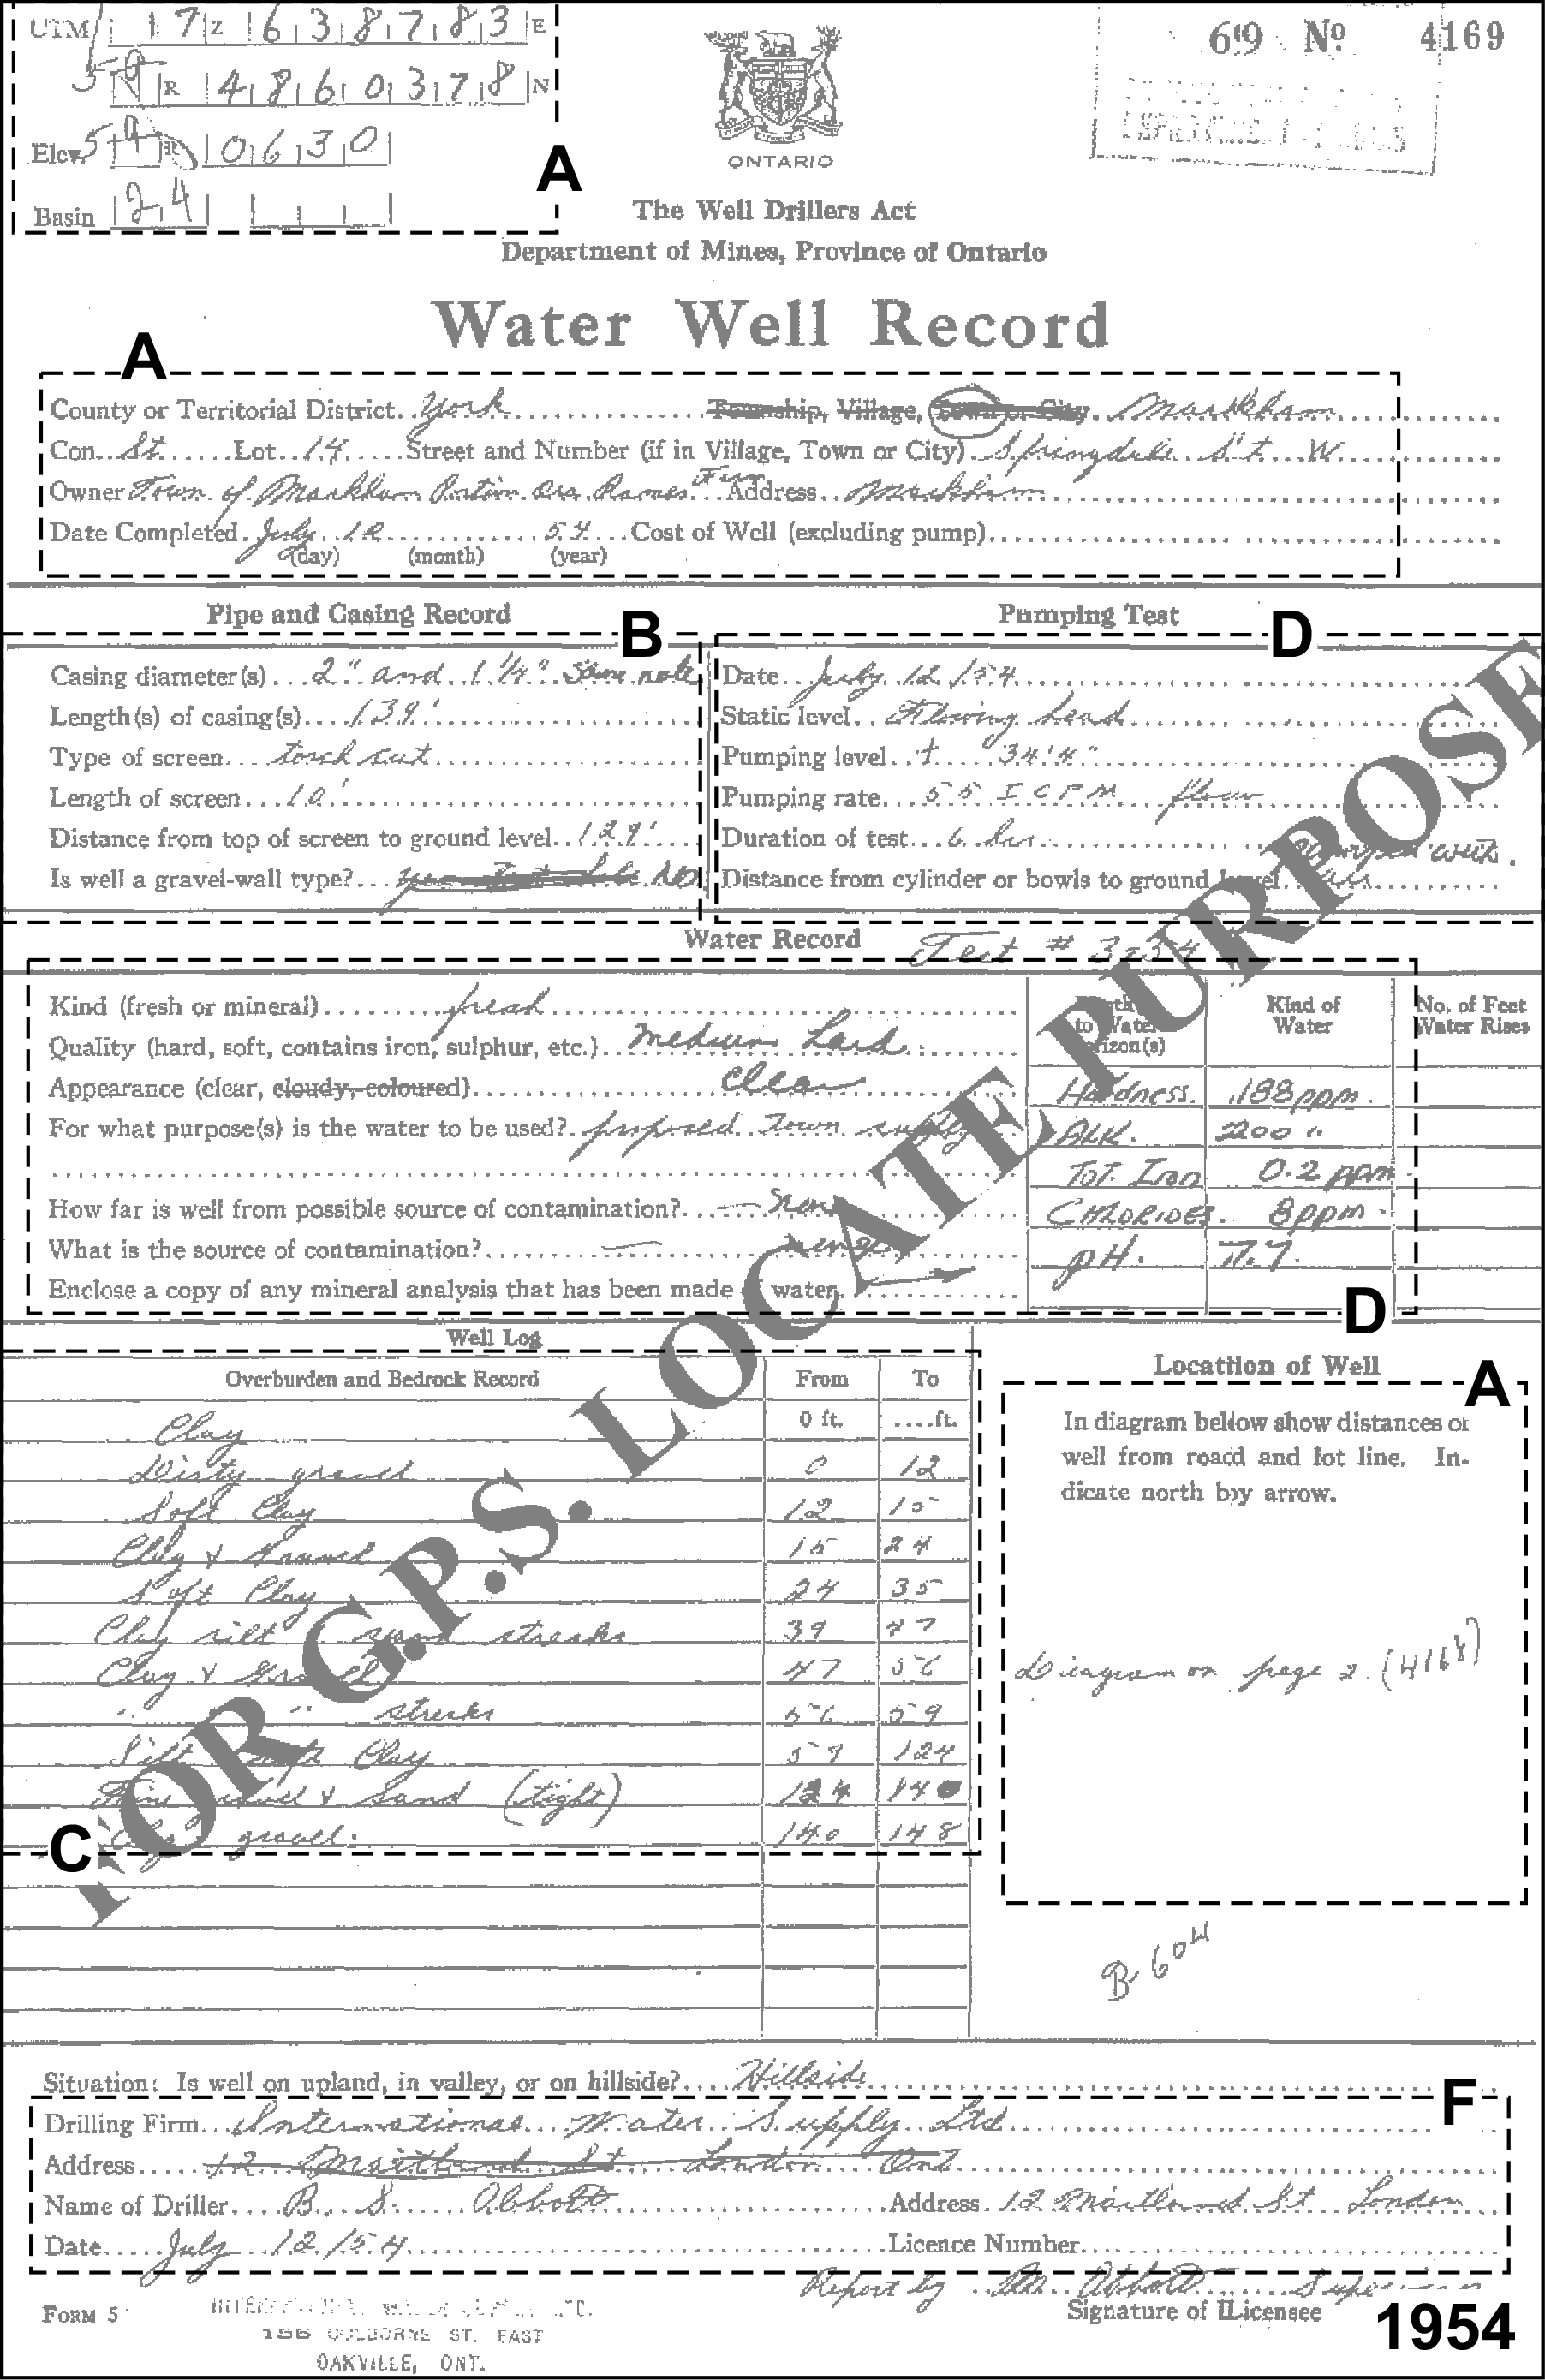 UTM 17 Z 638783 E
69 Nº 4169
R 4860378 N
Elev. R 0630
Basin 24
A
ONTARIO
The Well Drillers Act
Department of Mines, Province of Ontario
Water Well Record
A
County or Territorial District. York Township, Village, Town or City. Markham
Con. St. Lot. 14. Street and Number (if in Village, Town or City). Springdale St. W.
Owner Town of Markham Address. Markham
Date Completed. July 12 54. Cost of Well (excluding pump)
(day) (month) (year)
Pipe and Casing Record B
Casing diameter(s) 2" and 1 1/4" same hole
Length(s) of casing(s) 139'
Type of screen torch cut
Length of screen 10'
Distance from top of screen to ground level 129'
Is well a gravel-wall type? No
Pumping Test D
Date July 12/54
Static level Flowing head
Pumping level + 34'4"
Pumping rate 55 flow
Duration of test 6 hrs.
Distance from cylinder or bowls to ground level. with air
Water Record Test # 3-34
Kind (fresh or mineral) fresh
Quality (hard, soft, contains iron, sulphur, etc.) Medium Hard
Appearance (clear, cloudy, coloured) clear
For what purpose(s) is the water to be used? proposed town supply
How far is well from possible source of contamination? — none
What is the source of contamination? — none
Enclose a copy of any mineral analysis that has been made of water.
to Water Horizon(s) Kind of Water No. of Feet Water Rises
Hardness. 188 ppm.
ALK. 200 "
TOT. Iron 0.2 ppm
CHLORIDES. 8 ppm.
pH. 7.7.
D
Well Log
Overburden and Bedrock Record From To
0 ft. ....ft.
Clay
Dirty gravel 0 12
Soft Clay 12 15
Clay & Gravel 15 24
Soft Clay 24 35
Clay silt sand streaks 39 47
Clay & Gravel 47 56
" " streaks 56 59
Silt Soft Clay 59 124
Fine gravel & Sand (tight) 124 140
Clay gravel. 140 148
C
Location of Well
A
In diagram bellow show distances of
well from road and lot line. In-
dicate north by arrow.
Diagram on page 2. (4168)
B-604
FOR G.P.S. LOCATE PURPOSE
Situation: Is well on upland, in valley, or on hillside? Hillside
F
Drilling Firm International Water Supply Ltd
Address 12 Maitland St London Ont
Name of Driller B. S. Abbott Address. 12 Maitland St. London
Date July 12/54 Licence Number
Report by Abbott
Signature of Licensee
FORM 5
156 COLBORNE ST. EAST
OAKVILLE, ONT.
1954